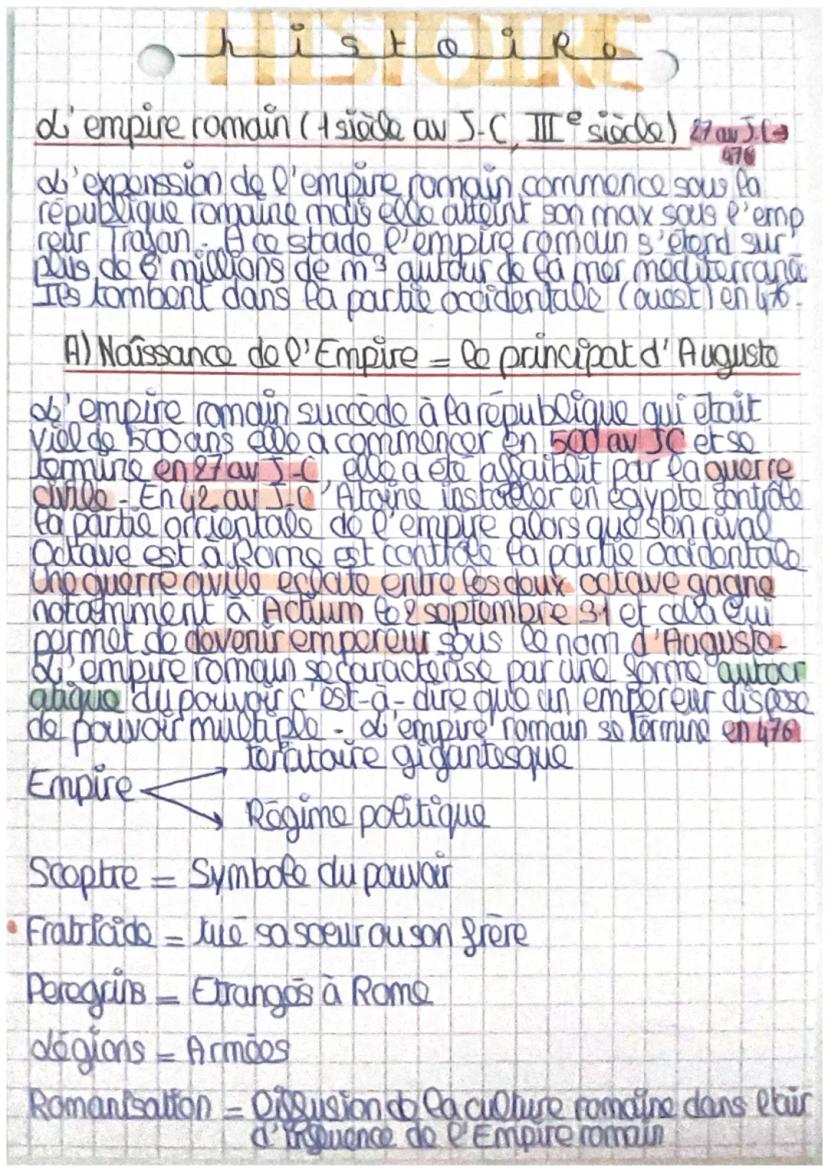 HISTOIRE
histoire
L'empire romain (1 siècle av J-C, IIIe siècle) 27 av J.C→
476
L'expenssion de l'empire romain commence sous la
république romaine mais elle atteint son max sous l'emp
reur Trajan. A ce stade l'empire romain s'étend sur
plus de 6 millions de m³ autour de la mer méditerrané
Ils tombent dans la partie occidentale (ouest) en 476.
A) Naissance de l'Empire = le principat d'Auguste
L'empire romain succède à la république qui était
viel de 500 ans elle a commencer en 500 av JC et se
termine en 27 av J-C elle a été affaiblit par la guerre
civile. En 42 av J-C Atoine installer en égypte contrôle
la partie orrientale de l'empyre alors que son rival
Octave est à Rome est contrôle la partie occidentale
Une guerre civile eclate entre les deux octave gagne
notamment à Actium le 2 septembre 31 et cela lui
permet de devenir empereur sous le nom d'Auguste.
L'empire romain se caractérise par une forme autocr
atique du pouvoir c'est-à-dire que un empereur dispose
de pouvoir multiple. L'empire romain se termine en 476
Empire
territoire gigantesque
Régime politique
Sceptre = Symbole du pouvoir
Fratricide = tué sa soeur ou son frère
Peregrins = Etrangés à Rome
Légions = Armées
Romanisation = Diffusion de la culture romaine dans l'air
d'influence de l'Empire romain